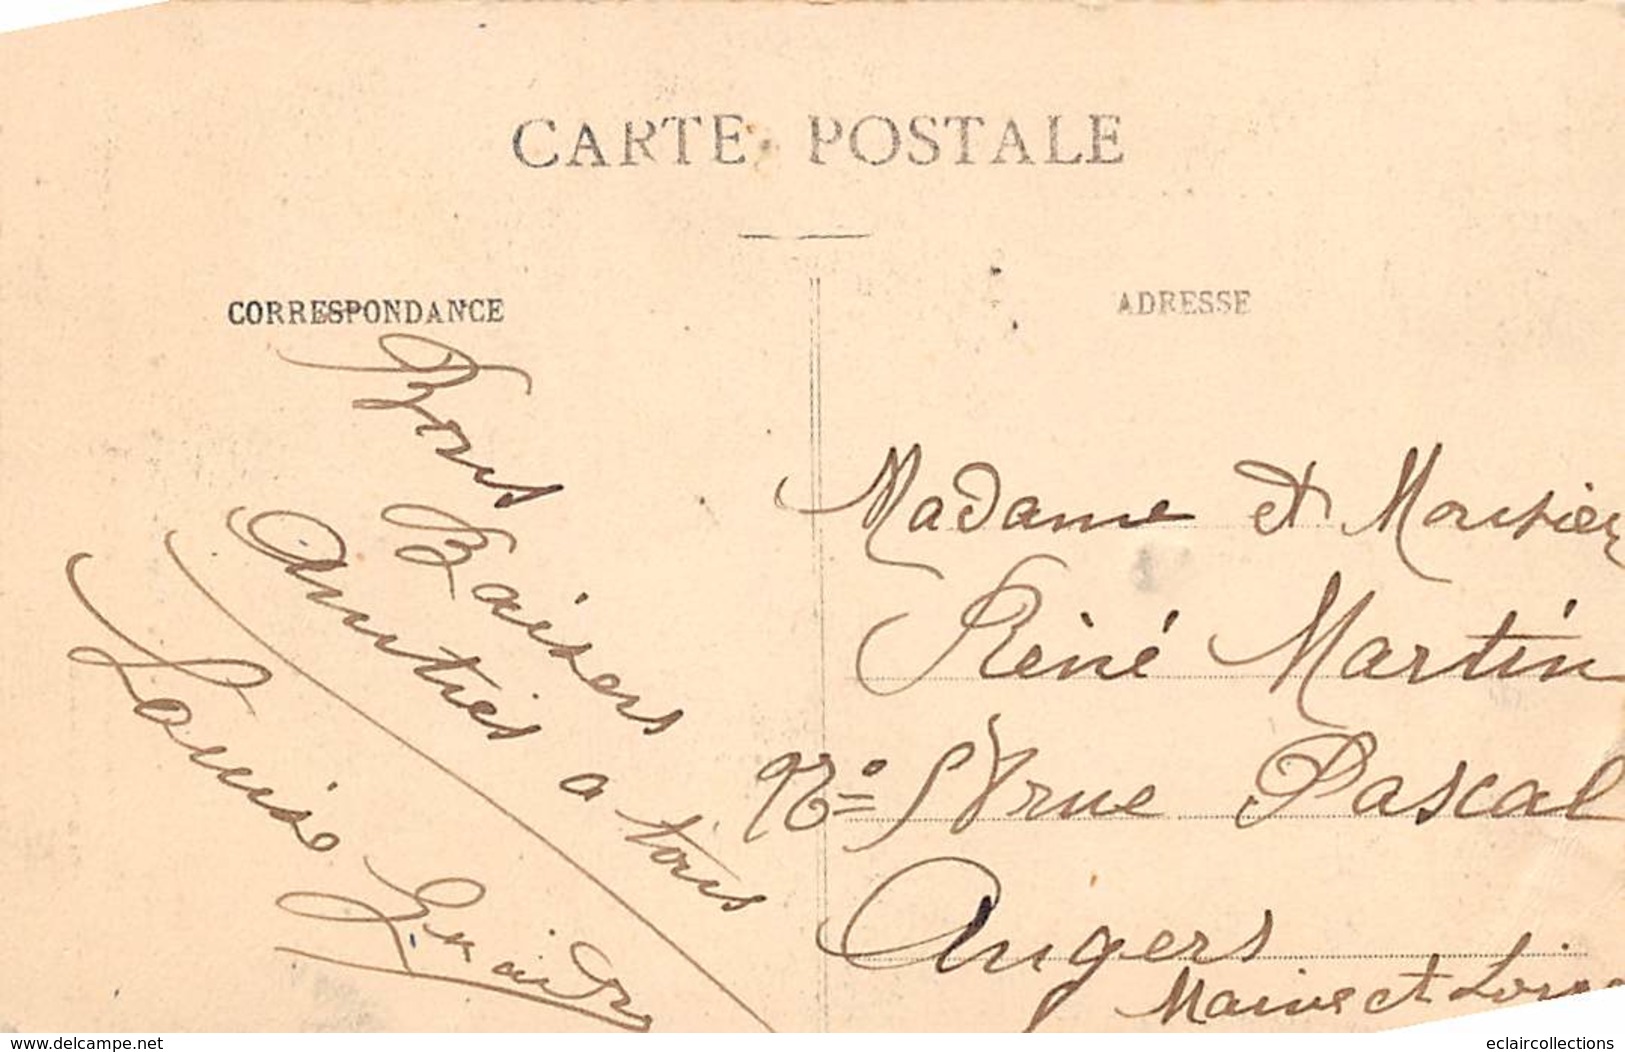 CARTE POSTALE
CORRESPONDANCE
ADRESSE
Bons
Baisers
Amitiés a tous
Louise
Madame et Monsieur
René Martin
rue Pascal
Angers
Maine et Loire
www.delcampe.net
eclaircollections